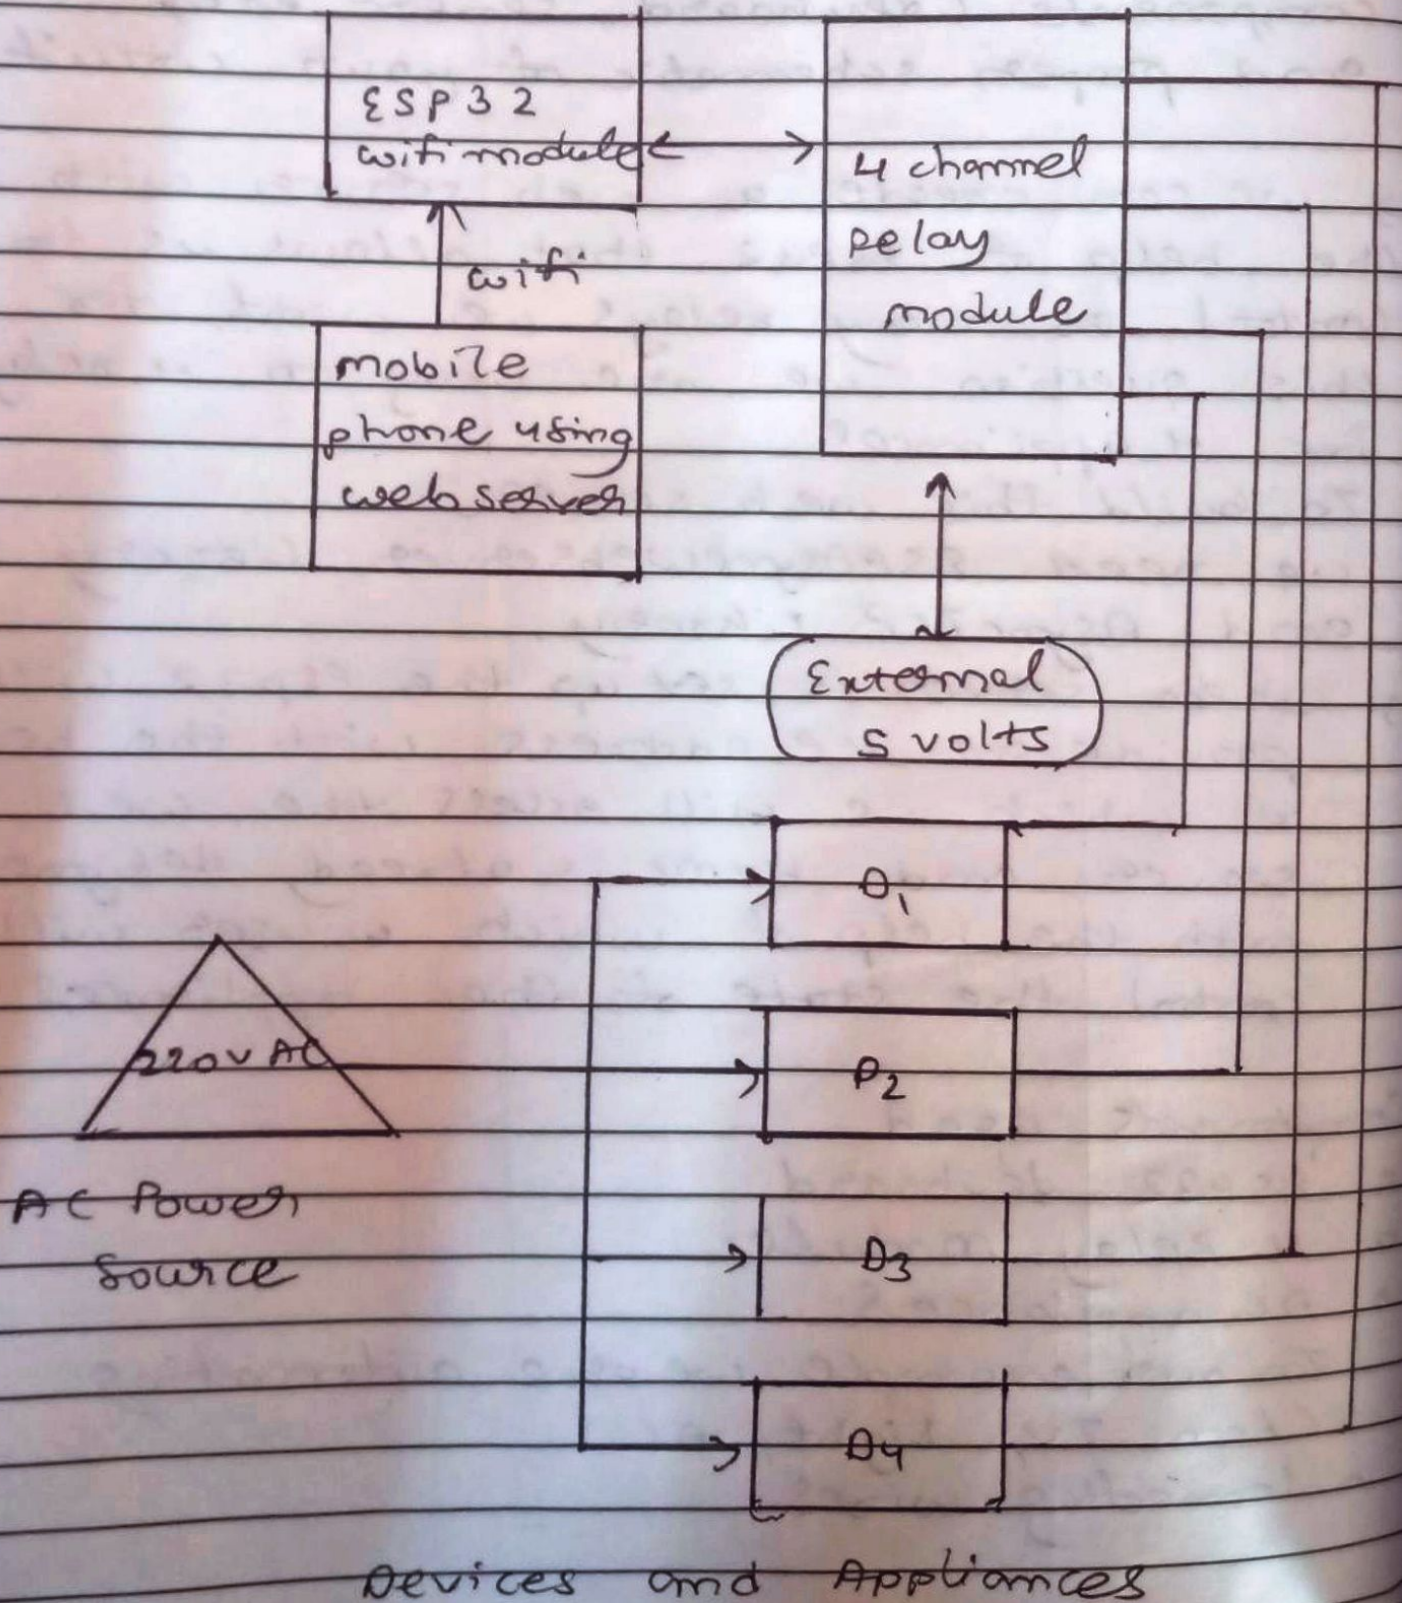 ESP32
wifi module
4 channel
relay
module
wifi
mobile
phone using
web server
External
5 volts
D1
220V AC
D2
AC Power
Source
D3
D4
Devices and Appliances